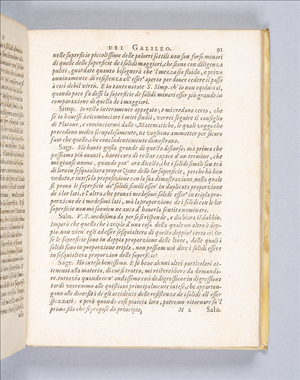 DEL GALILEO. 91
nelle superficie piccolissime delle polveri sottili non son forse minori
di quelle delle superficie de i solidi maggiori, che sieno con diligenza
puliti, guardate quanto bisognerà che 'l mezzo sia fluido, e privo
onninamente di resistenza all'esser' aperto per dover cedere il passo
à così debil virtù. E in tanto notate S. Simp. ch'io non equivocai,
quando poco fà dissi la superficie de' solidi minori esser più grande in
comparazione di quella de i maggiori.
Simp. Io resto interamente appagato, e mi credano certo, che
se io havessi à ricominciare i miei studii, vorrei seguire il consiglio
di Platone, e cominciarmi dalle Matematiche, le quali veggo che
procedono molto scrupolosamente, ne vogliono ammetter per sicuro
fuor che quello, che concludentemente dimostrano.
Sagr. Hò hauto gusto grande di questo discorso, mà prima che
passiamo più avanti, harei caro di restar capace d'un termino, che
mi giunse nuovo, quando pur' ora diceste, che i solidi simili son trà
di loro in sesquialtera proporzione delle lor superficie, perche hò ben
veduta, e intesa la proposizione con la sua dimostrazione, nella quale
si prova le superficie de' solidi simili esser' in duplicata proporzione
de i lor lati, e l'altra, che prova i medesimi solidi esser' in tripla pro-
porzione de i medesimi lati, mà la proporzione de i solidi con le lor
superficie non mi sovviene ne anco di haverla sentita nominare.
Salu. V. S. medesima da per se si risponde, e dichiara il dubbio.
Imperò che quello, che è triplo d'una cosa della quale un altro è dop-
pio, non vien' egli ad esser sesquialtero di questo doppio? certo sì. Or
se le superficie sono in doppia proporzione delle linee, delle quali i
solidi sono in proporzione tripla, non possiamo noi dire i solidi essere
in sesquialtera proporzione delle superficie?
Sagr. Hò inteso benissimo. E se bene alcuni altri particolari at-
tenenti alla materia, di cui si tratta, mi resterebbero da domanda-
re, tuttavia quando ce n'andassimo così di digressione in digressione
tardi verremmo alle quistioni principalmente intese, che apparten-
gono alle diversità de gli accidenti delle resistenze de i solidi all'esser
spezzati: e però quando così piaccia loro, potremo ritornare su'l
primo filo che si propose da principio,
M 2 Salu.